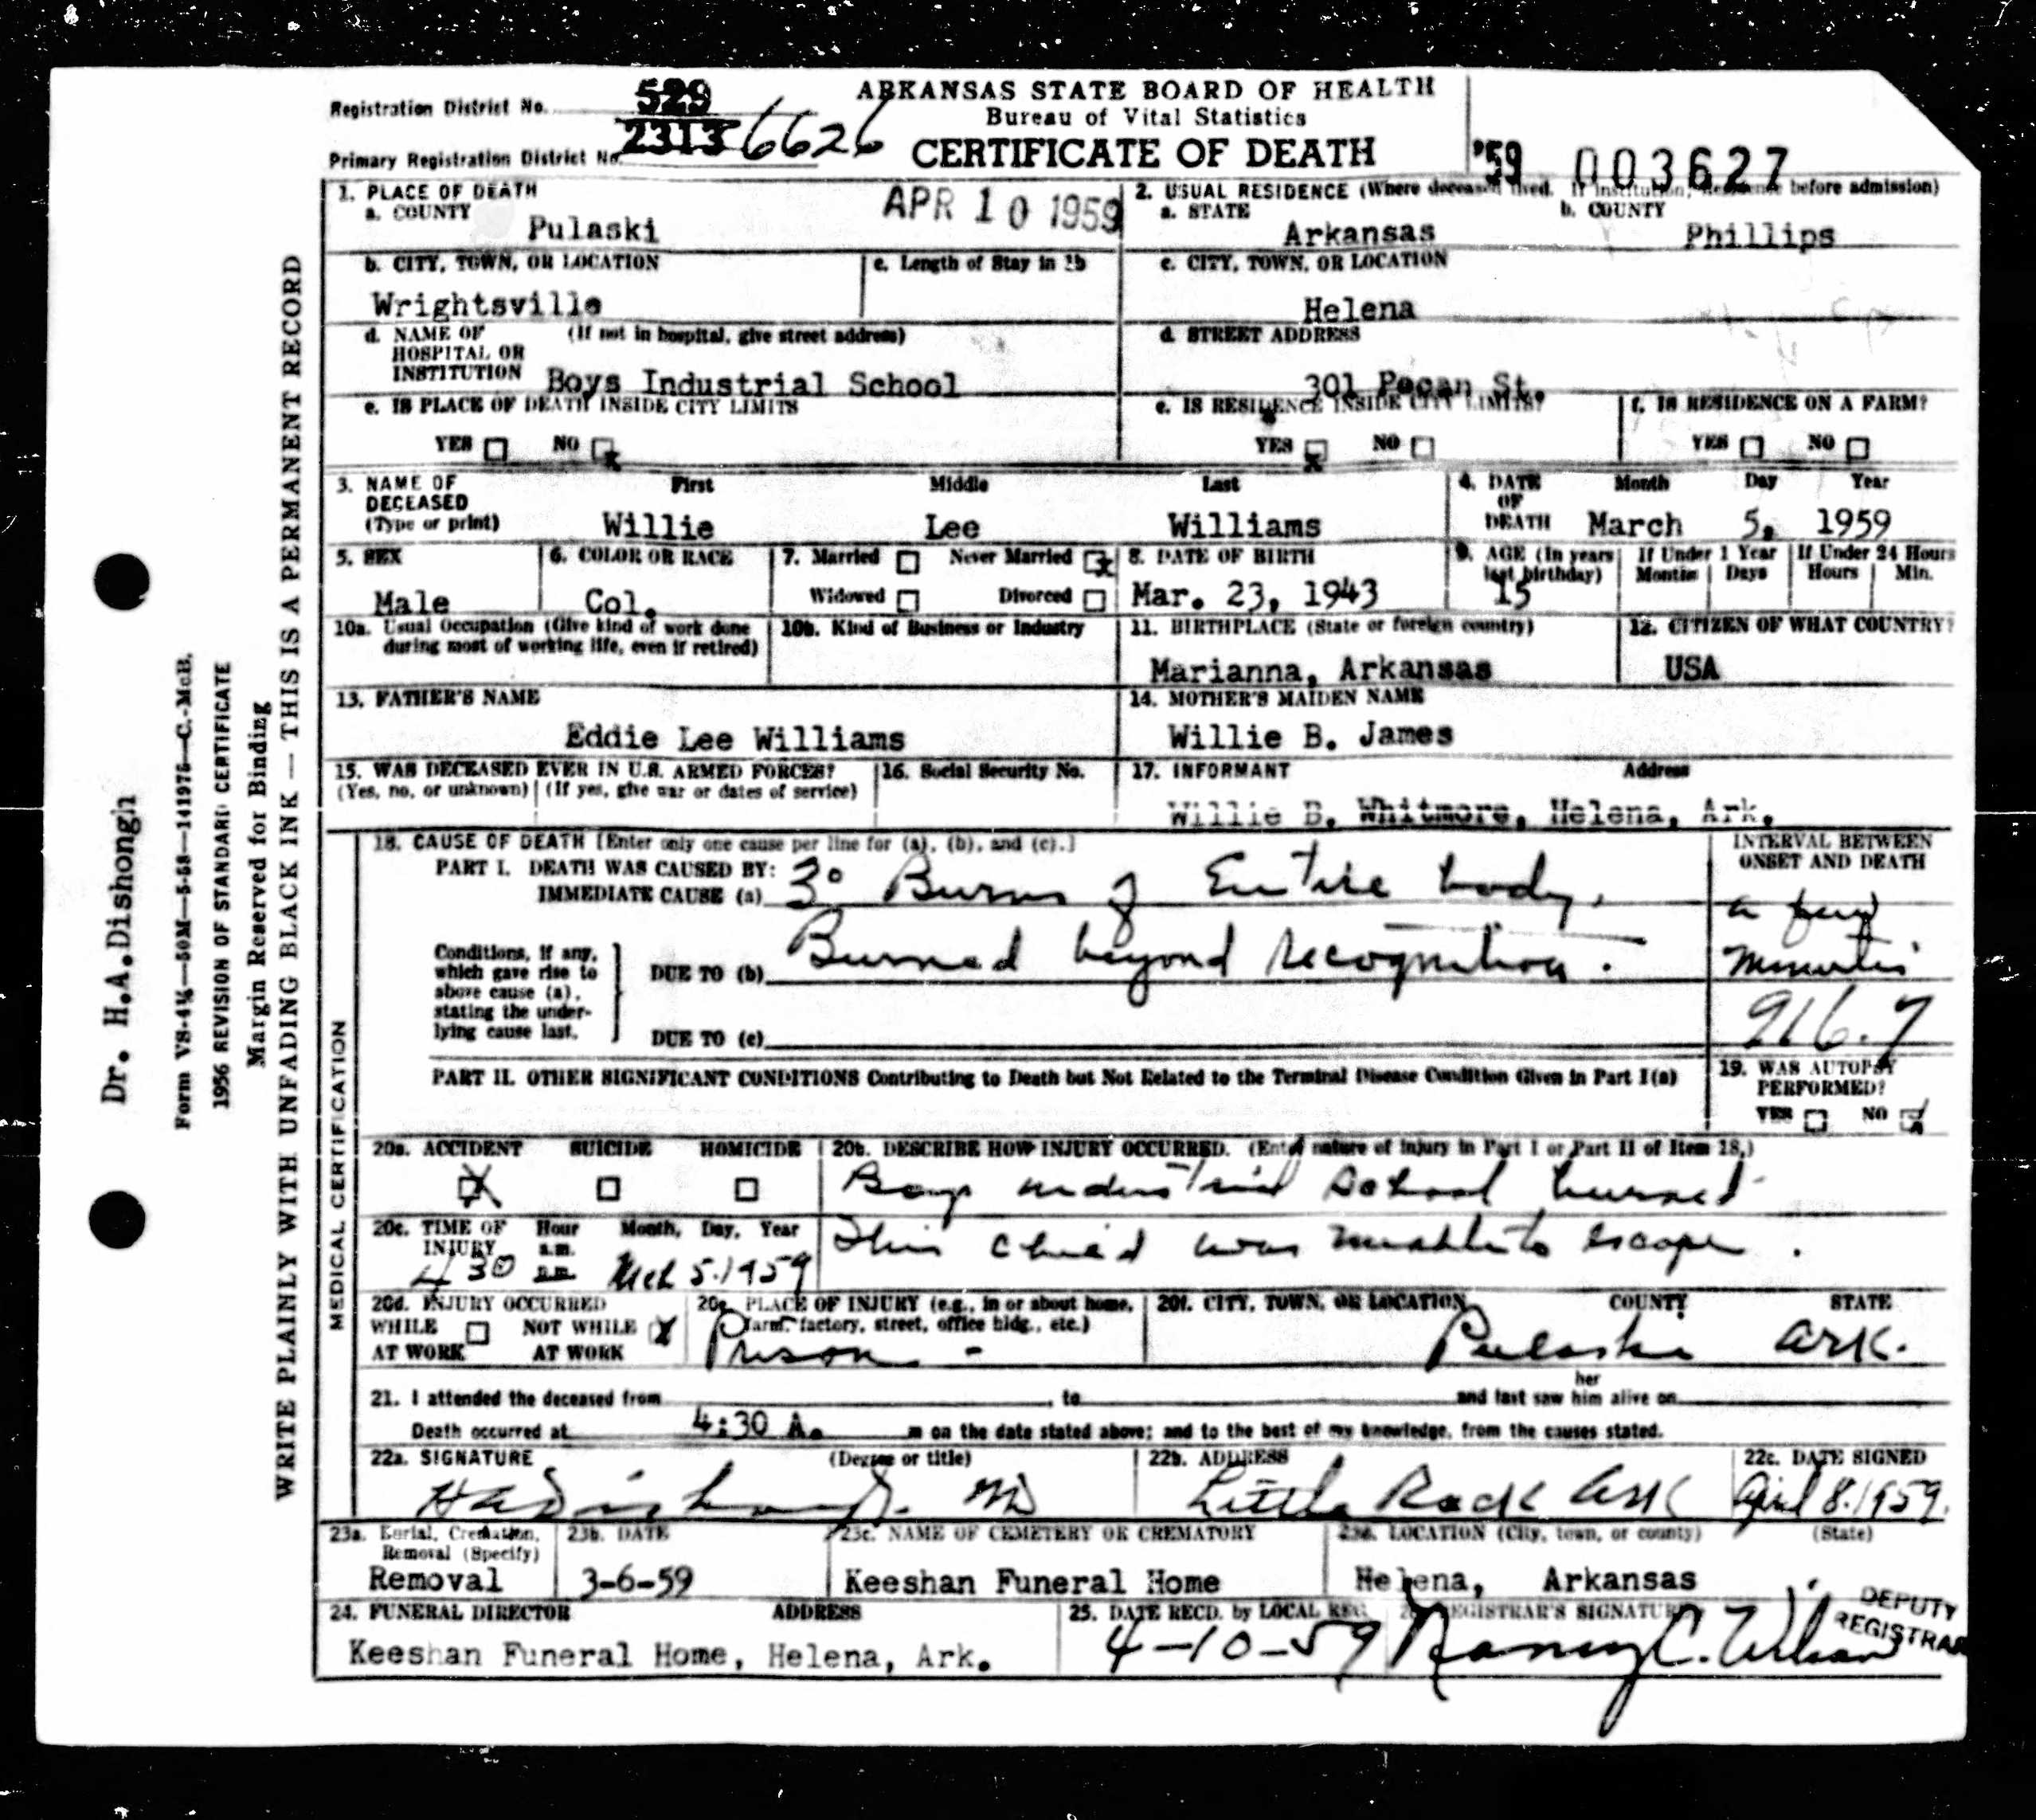 Registration District No. 529
ARKANSAS STATE BOARD OF HEALTH
Bureau of Vital Statistics
Primary Registration District No. 2313 6626
CERTIFICATE OF DEATH
'59 003627
APR 10 1959
1. PLACE OF DEATH
a. COUNTY
Pulaski
2. USUAL RESIDENCE (Where deceased lived. If institution, residence before admission)
a. STATE
Arkansas
b. COUNTY
Phillips
b. CITY, TOWN, OR LOCATION
Wrightsville
c. Length of Stay in 1b
c. CITY, TOWN, OR LOCATION
Helena
d. NAME OF HOSPITAL OR INSTITUTION
(If not in hospital, give street address)
Boys Industrial School
d. STREET ADDRESS
301 Pecan St.
e. IS PLACE OF DEATH INSIDE CITY LIMITS
YES NO X
e. IS RESIDENCE INSIDE CITY LIMITS?
YES X NO
f. IS RESIDENCE ON A FARM?
YES NO
3. NAME OF DECEASED
(Type or print)
First Middle Last
Willie Lee Williams
4. DATE OF DEATH
Month Day Year
March 5, 1959
5. SEX
Male
6. COLOR OR RACE
Col.
7. Married Never Married X
Widowed Divorced
8. DATE OF BIRTH
Mar. 23, 1943
9. AGE (In years last birthday)
15
If Under 1 Year
Months Days
If Under 24 Hours
Hours Min.
10a. Usual Occupation (Give kind of work done during most of working life, even if retired)
10b. Kind of Business or Industry
11. BIRTHPLACE (State or foreign country)
Marianna, Arkansas
12. CITIZEN OF WHAT COUNTRY?
USA
13. FATHER'S NAME
Eddie Lee Williams
14. MOTHER'S MAIDEN NAME
Willie B. James
15. WAS DECEASED EVER IN U.S. ARMED FORCES?
(Yes, no, or unknown) (If yes, give war or dates of service)
16. Social Security No.
17. INFORMANT Address
Willie B. Whitmore, Helena, Ark.
MEDICAL CERTIFICATION
18. CAUSE OF DEATH [Enter only one cause per line for (a), (b), and (c).]
INTERVAL BETWEEN ONSET AND DEATH
PART I. DEATH WAS CAUSED BY:
IMMEDIATE CAUSE (a) 3° Burns of Entire body.
a few minutes
Conditions, if any, which gave rise to above cause (a), stating the underlying cause last.
DUE TO (b) Burned beyond recognition.
DUE TO (c)
916.7
PART II. OTHER SIGNIFICANT CONDITIONS Contributing to Death but Not Related to the Terminal Disease Condition Given in Part I(a)
19. WAS AUTOPSY PERFORMED?
YES NO
20a. ACCIDENT SUICIDE HOMICIDE
X
20b. DESCRIBE HOW INJURY OCCURRED. (Enter nature of injury in Part I or Part II of Item 18.)
Boys industrial School burned
This child was unable to escape.
20c. TIME OF INJURY
Hour Month, Day, Year
a.m.
p.m.
4 30 Mch 5. 1959
20d. INJURY OCCURRED
WHILE AT WORK NOT WHILE AT WORK X
20e. PLACE OF INJURY (e.g., in or about home, farm, factory, street, office bldg., etc.)
Prison -
20f. CITY, TOWN, OR LOCATION COUNTY STATE
Pulaski Ark.
21. I attended the deceased from , to and last saw her him alive on
Death occurred at 4:30 A. m on the date stated above; and to the best of my knowledge, from the causes stated.
22a. SIGNATURE (Degree or title)
HA Dishongh. MD
22b. ADDRESS
Little Rock Ark
22c. DATE SIGNED
April 8. 1959.
23a. Burial, Cremation, Removal (Specify)
Removal
23b. DATE
3-6-59
23c. NAME OF CEMETERY OR CREMATORY
Keeshan Funeral Home
23d. LOCATION (City, town, or county) (State)
Helena, Arkansas
24. FUNERAL DIRECTOR ADDRESS
Keeshan Funeral Home, Helena, Ark.
25. DATE RECD. by LOCAL REG.
4-10-59
26. REGISTRAR'S SIGNATURE
Nancy C. Wilson
DEPUTY REGISTRAR
WRITE PLAINLY WITH UNFADING BLACK INK — THIS IS A PERMANENT RECORD
Margin Reserved for Binding
1956 REVISION OF STANDARD CERTIFICATE
Form VS-4½—50M—5-58—141975—C.-McB.
Dr. H.A.Dishongh